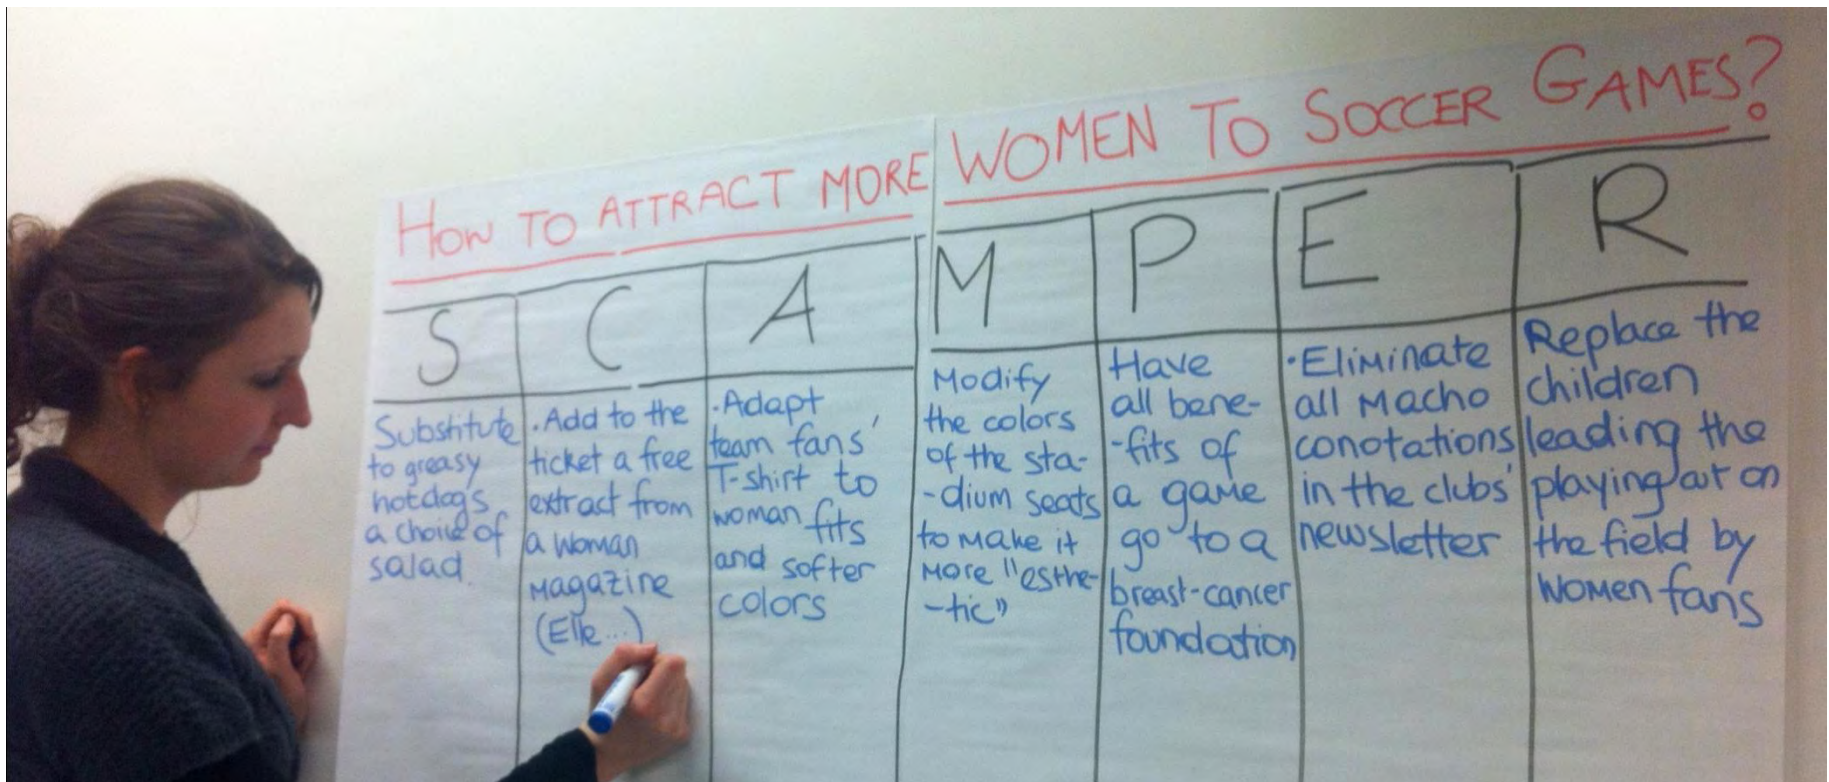 HOW TO ATTRACT MORE WOMEN TO SOCCER GAMES?
S
C
A
M
P
E
R
Substitute
to greasy
hotdogs
a choice of
salad.
. Add to the
ticket a free
extract from
a woman
magazine
(Elle...)
. Adapt
team fans'
T-shirt to
woman fits
and softer
colors
Modify
the colors
of the sta-
-dium seats
to make it
more "esthe-
-tic"
Have
all bene-
-fits of
a game
go to a
breast-cancer
foundation
. Eliminate
all Macho
conotations
in the clubs'
newsletter
Replace the
children
leading the
playing out on
the field by
women fans